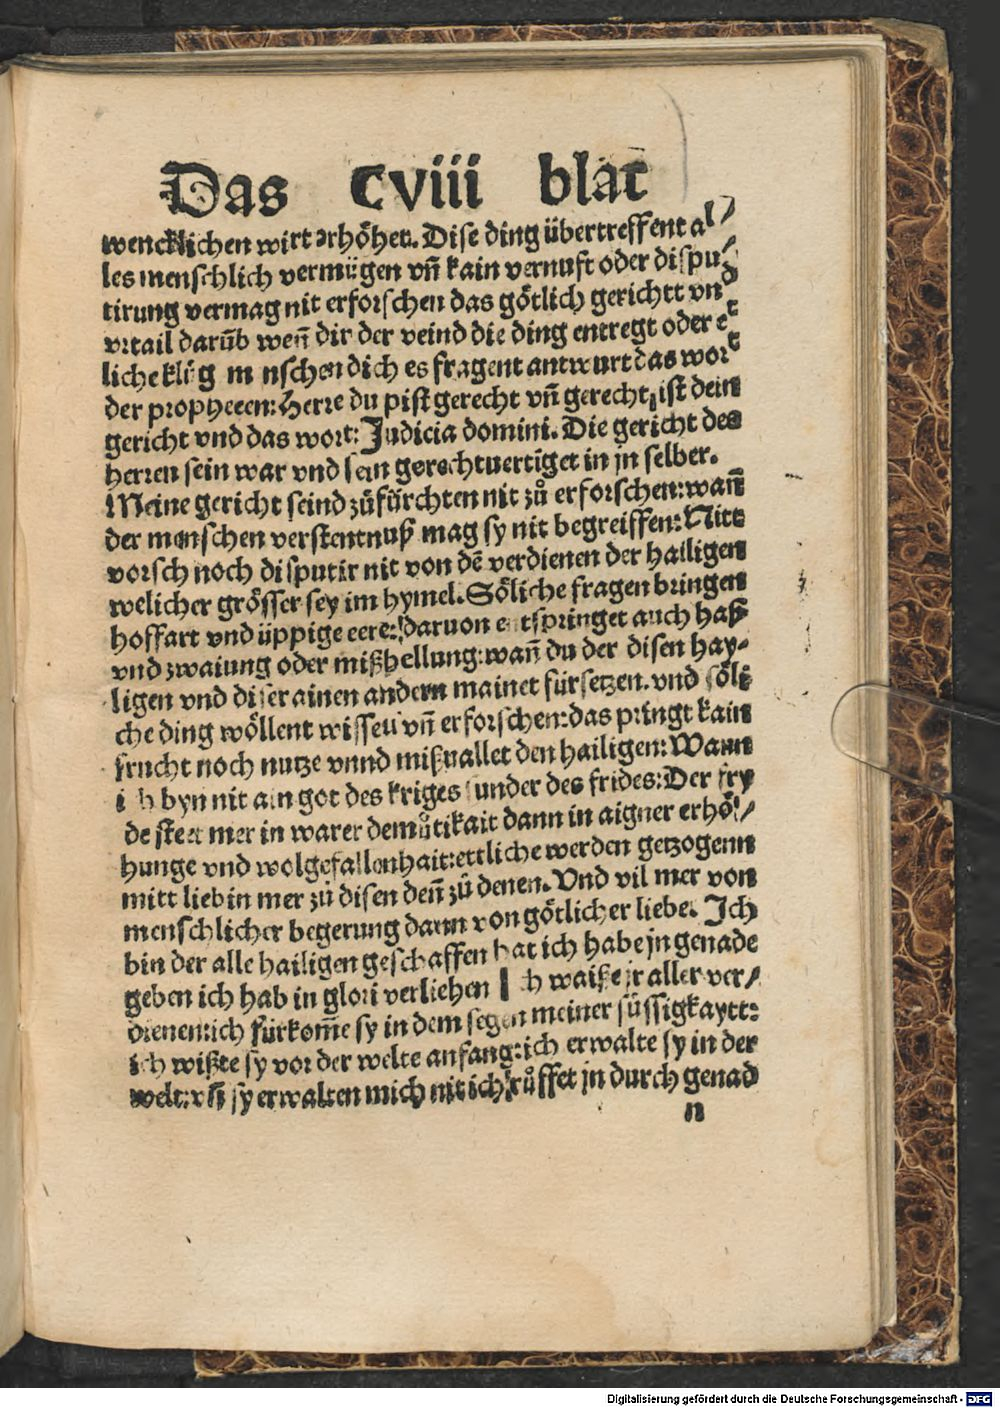 Das Cviii blat
wencklichen wirt erhöhet. Dise ding übertreffent al/
les menschlich vermügen vn̄ kain vernuft oder dispu/
tirung vermag nit erforschen das götlich gerichtt vnd
vrtail darūb wen̄ dir der veind die ding entregt oder et
liche klůg menschen dich es fragent antwurt das wort
der propheten: Herre du pist gerecht vn̄ gerecht ist dein
gericht vnd das wort: Judicia domini. Die gericht des
herren sein war vnd sein gerechtuertīget in jn selber.
Meine gericht seind zůfürchten nit zů erforschen: wan̄
der menschen verstentnuß mag sy nit begreiffen: Nitt
vorsch noch disputir nit von dē verdienen der hailigen
welicher grösser sey im hymel. Söliche fragen bringen
hoffart vnd üppige eere: daruon entspringet auch haß
vnd zwaiung oder mißhellung: wan̄ du der disen hay-
ligen vnd diser ainen andern mainet fürsetzen. vnd söli
che ding wöllent wissen vn̄ erforschen: das pringt kain
frucht noch nutze vnnd mißuallet den hailigen: Wann
ich byn nit ain got des kriges sunder des frides: Der fry
de steet mer in warer demůtikait dann in aigner erhö/
hunge vnd wolgefallenhait: ettliche werden getzogenn
mitt liebin mer zů disen den̄ zů denen. Vnd vil mer von
menschlicher begerung dann von götlicher liebe. Ich
bin der alle hailigen geschaffen hat ich habe jn genade
geben ich hab in glori verliehen Ich waiße jr aller ver/
dienen: ich fürkom̄e sy in dem segen meiner süssigkaytt:
ich wißte sy vor der welte anfang: ich erwalte sy in der
welt: vn̄ sy erwalten mich nit ich růffet jn durch genad
n
Digitalisierung gefördert durch die Deutsche Forschungsgemeinschaft - DFG